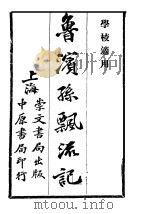 學校適用
魯濱孫飄流記
上海
崇文書局出版
中原書局印行
mtoou.info